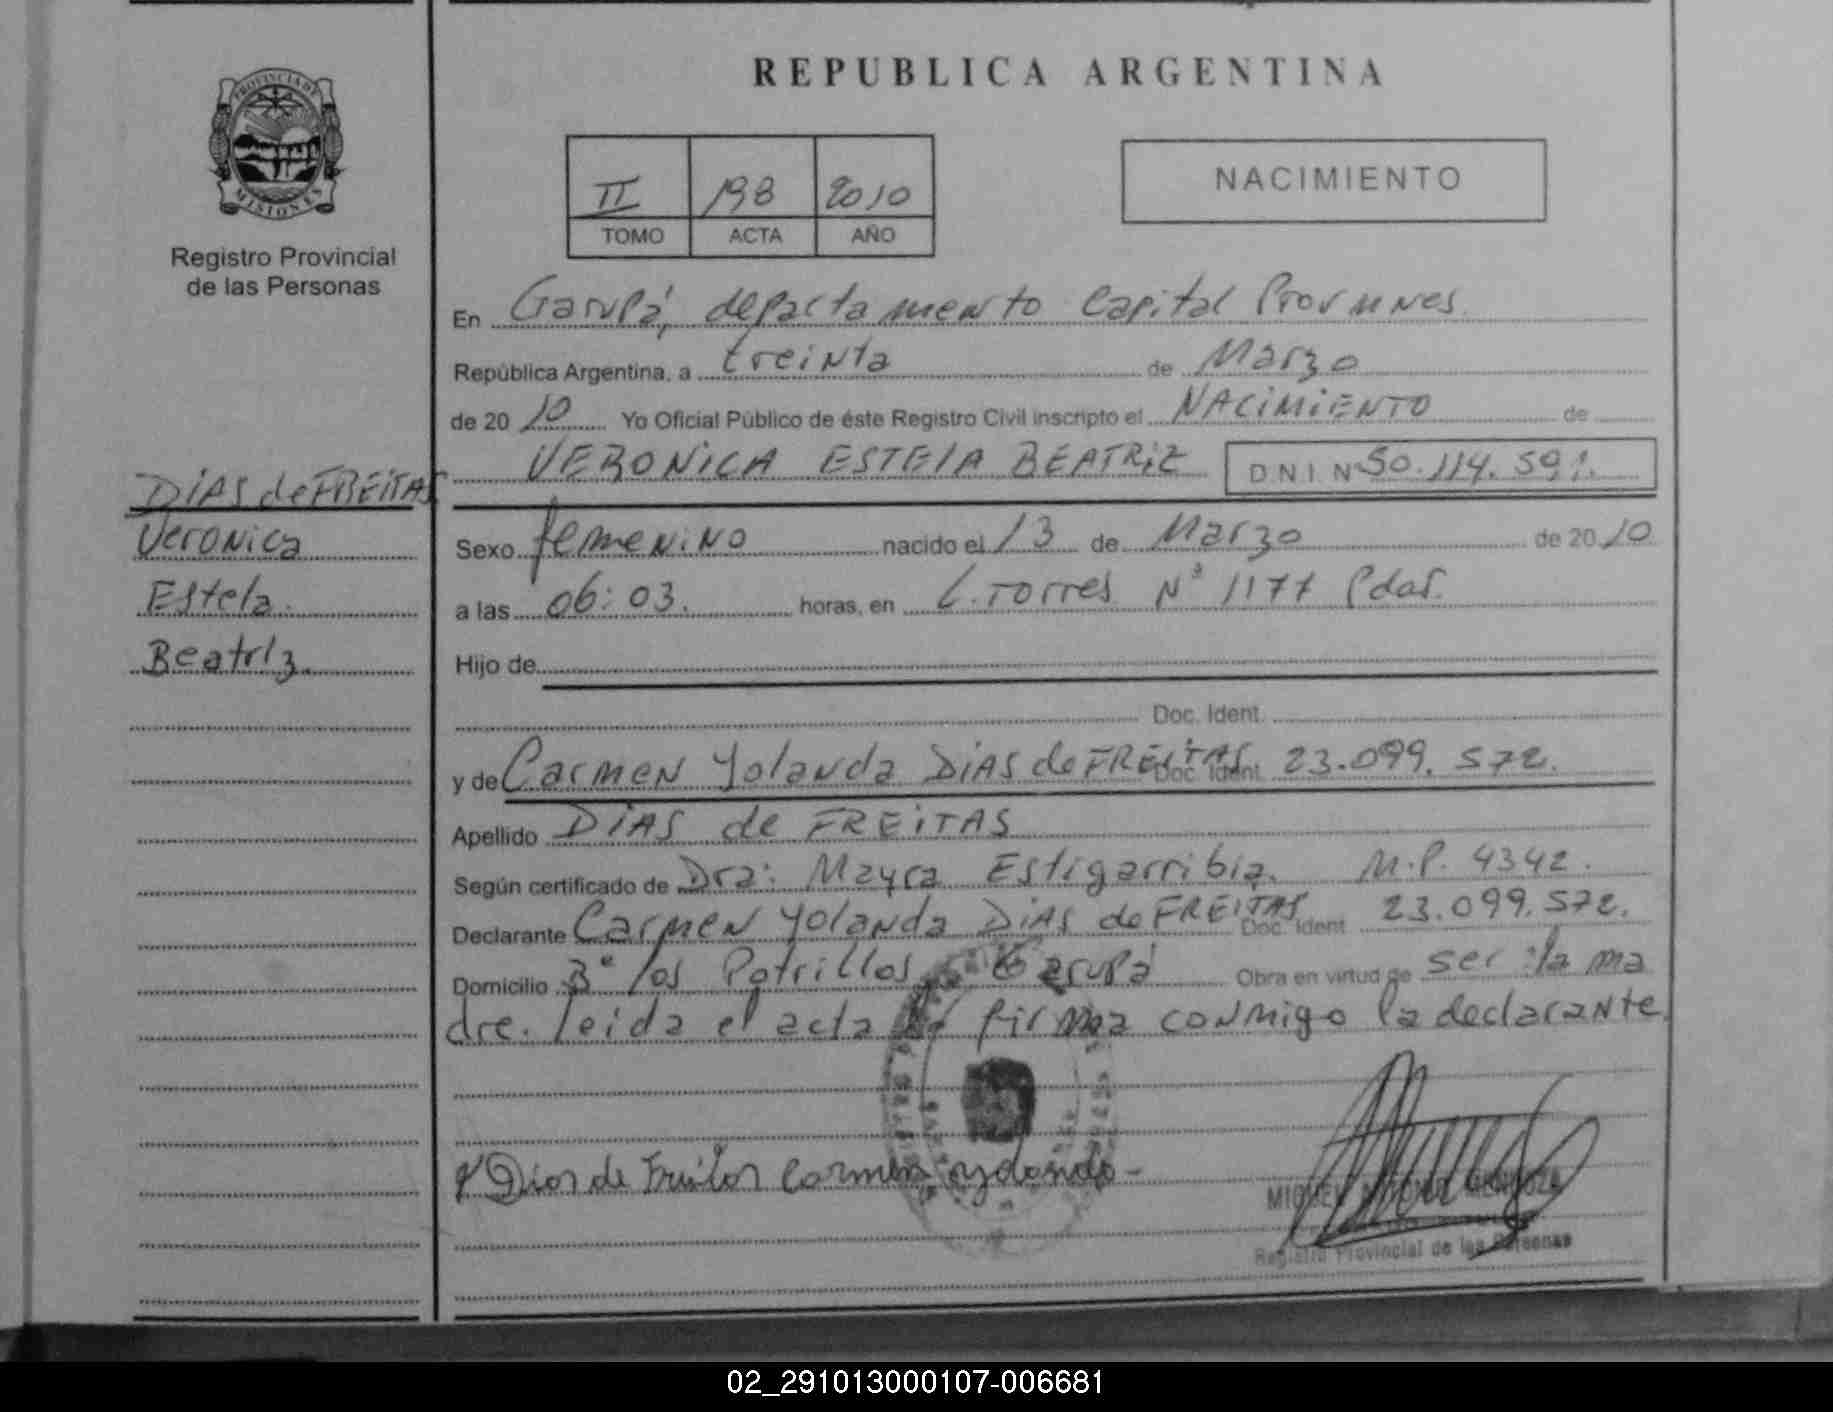 REPUBLICA ARGENTINA
PROVINCIA DE
MISIONES
Registro Provincial
de las Personas
II 198 2010
TOMO ACTA AÑO
NACIMIENTO
En Garupá, departamento Capital Prov Mnes
República Argentina, a treinta de Marzo
de 20 10 Yo Oficial Público de éste Registro Civil inscripto el NACIMIENTO de
VERONICA ESTELA BEATRIZ D.N.I. Nº 50.114.591.
DIAS de FREITAS
Veronica
Estela.
Beatriz.
Sexo femenino nacido el 13 de Marzo de 20 10
a las 06:03. horas, en L. Torres Nº 1177 Pdas.
Hijo de
Doc. Ident.
y de Carmen Yolanda DIAS de FREITAS Doc. Ident. 23.099.572.
Apellido DIAS de FREITAS
Según certificado de Dra: Mayra Estigarribia. M.P. 4342.
Declarante Carmen Yolanda DIAS de FREITAS Doc. Ident. 23.099.572.
Domicilio Bº los Potrillos Garupá Obra en virtud de ser la ma
dre. leida el acta firma conmigo la declarante.
Dias de Freitas Carmen
MIGUEL MENDOZA
Registro Provincial de las Personas
02_291013000107-006681